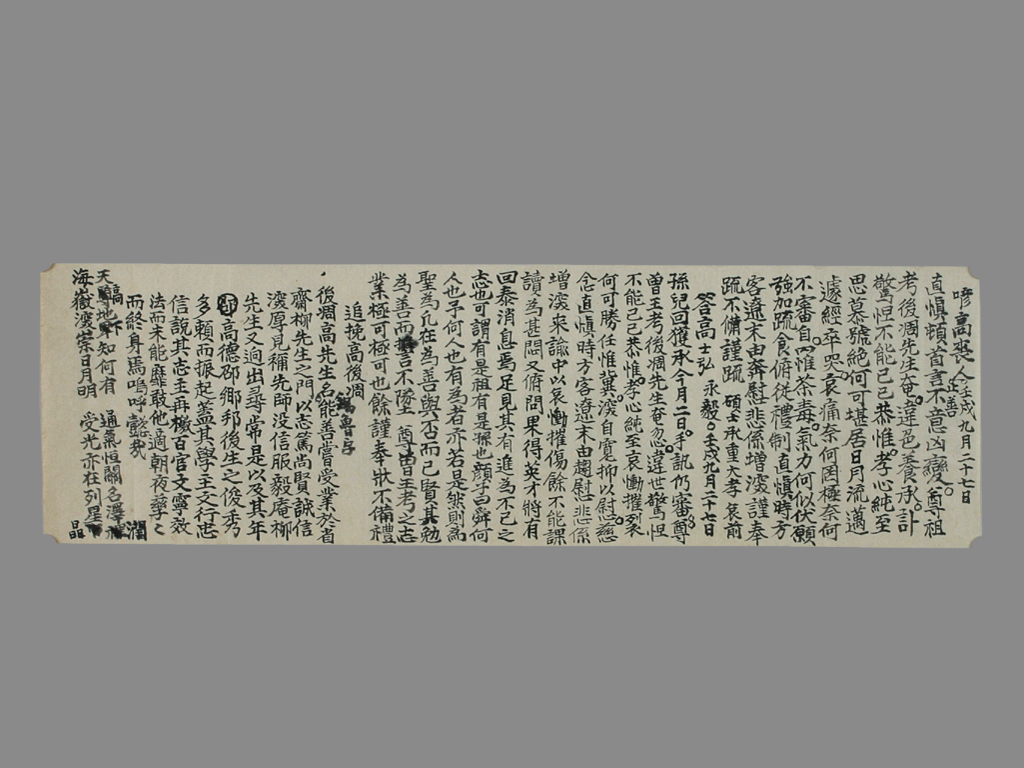 唁高喪人 壬戌九月二十七日
正善
直愼頓首言不意凶變尊祖
考後凋先生奄違邑養承訃
驚怛不能已已恭惟孝心純至
思慕號絶何可堪居日月流邁
遽經卒哭哀痛奈何罔極奈何
不審自惟荼毒氣力何似伏願
強加疏食俯從禮制直愼時方
客遼末由奔慰悲係增深謹奉
疏不備謹疏 碩士承重大孝哀前
答高士弘 永毅 壬戌九月二十七日
孫児回獲承今月二日手訊仍審尊
曾王考後凋先生奄忽違世驚怛
不能已已恭惟孝心純至哀慟摧裂
何可勝任惟冀深自寬抑以慰慈
念直愼時方客遼末由趨慰悲係
增深來諭中以哀慟摧傷餘不能課
讀爲甚悶又俯問果得英才將有
回泰消息焉足見其有進爲不已之
志也可謂有是祖有是孫也顔淵曰舜何
人也予何人也有爲者亦若是然則爲
聖爲凡在爲善與否而已賢其勉
爲善而不墜尊曾王考之志
業極可極可也餘謹奉狀不備禮
追挽高後凋 魯善
後凋高先生名能善嘗受業於省
齋柳先生之門以志篤尚賢誠信
深厚見稱先師没信服毅庵柳
先生又逈出尋常是以及其年
卲高德卲鄉邦後生之俊秀
多賴而振起盖其學主文行忠
信說其志主再檄百官文寧效
法而末能靡敢他適朝夜孶々
而終身焉嗚呼懿哉
天高地下知何有 通氣恒關名澤
海嶽深崇日月明 受光亦在列星
潤
晶